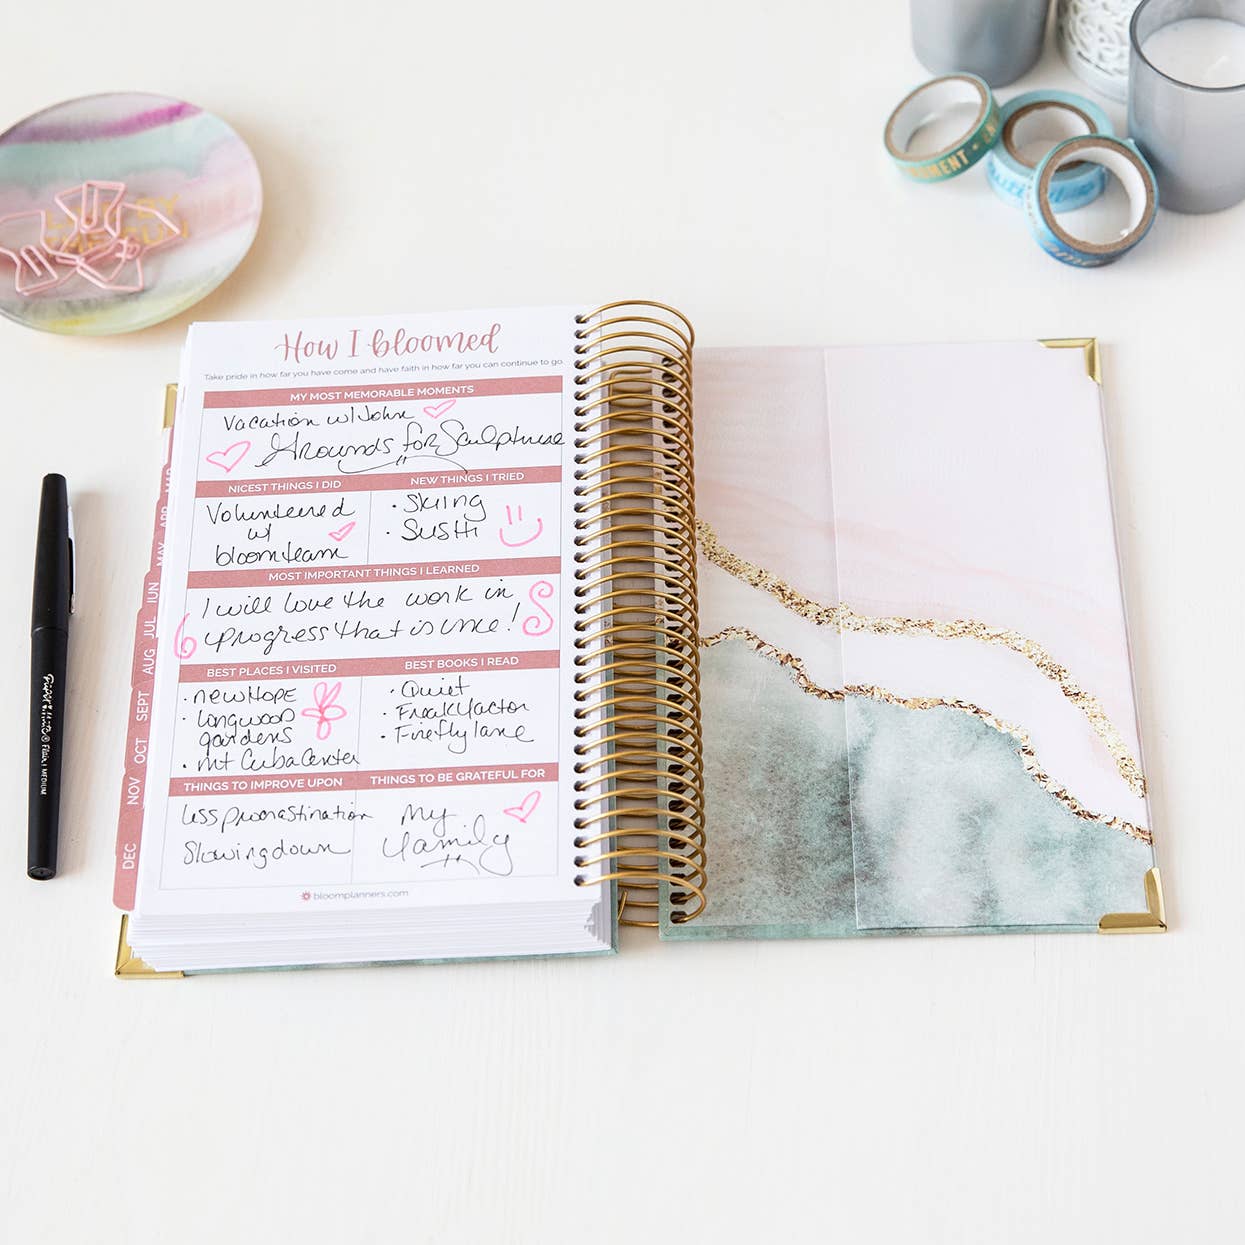 LIVE BY
THE SUN
How I bloomed
Take pride in how far you have come and have faith in how far you can continue to go.
MY MOST MEMORABLE MOMENTS
Vacation w/John
Grounds for Sculpture
NICEST THINGS I DID
Volunteered
w/
bloom team
NEW THINGS I TRIED
· Skiing
· Sushi
MOST IMPORTANT THINGS I LEARNED
I will love the work in
progress that is me!
BEST PLACES I VISITED
· new Hope
· Longwood
gardens
· Mt Cuba Center
BEST BOOKS I READ
· Quiet
· Freak factor
· Firefly lane
THINGS TO IMPROVE UPON
less procrastination
Slowing down
THINGS TO BE GRATEFUL FOR
My
family
bloomplanners.com
MAR
APR
MAY
JUN
JUL
AUG
SEPT
OCT
NOV
DEC
Flair MEDIUM